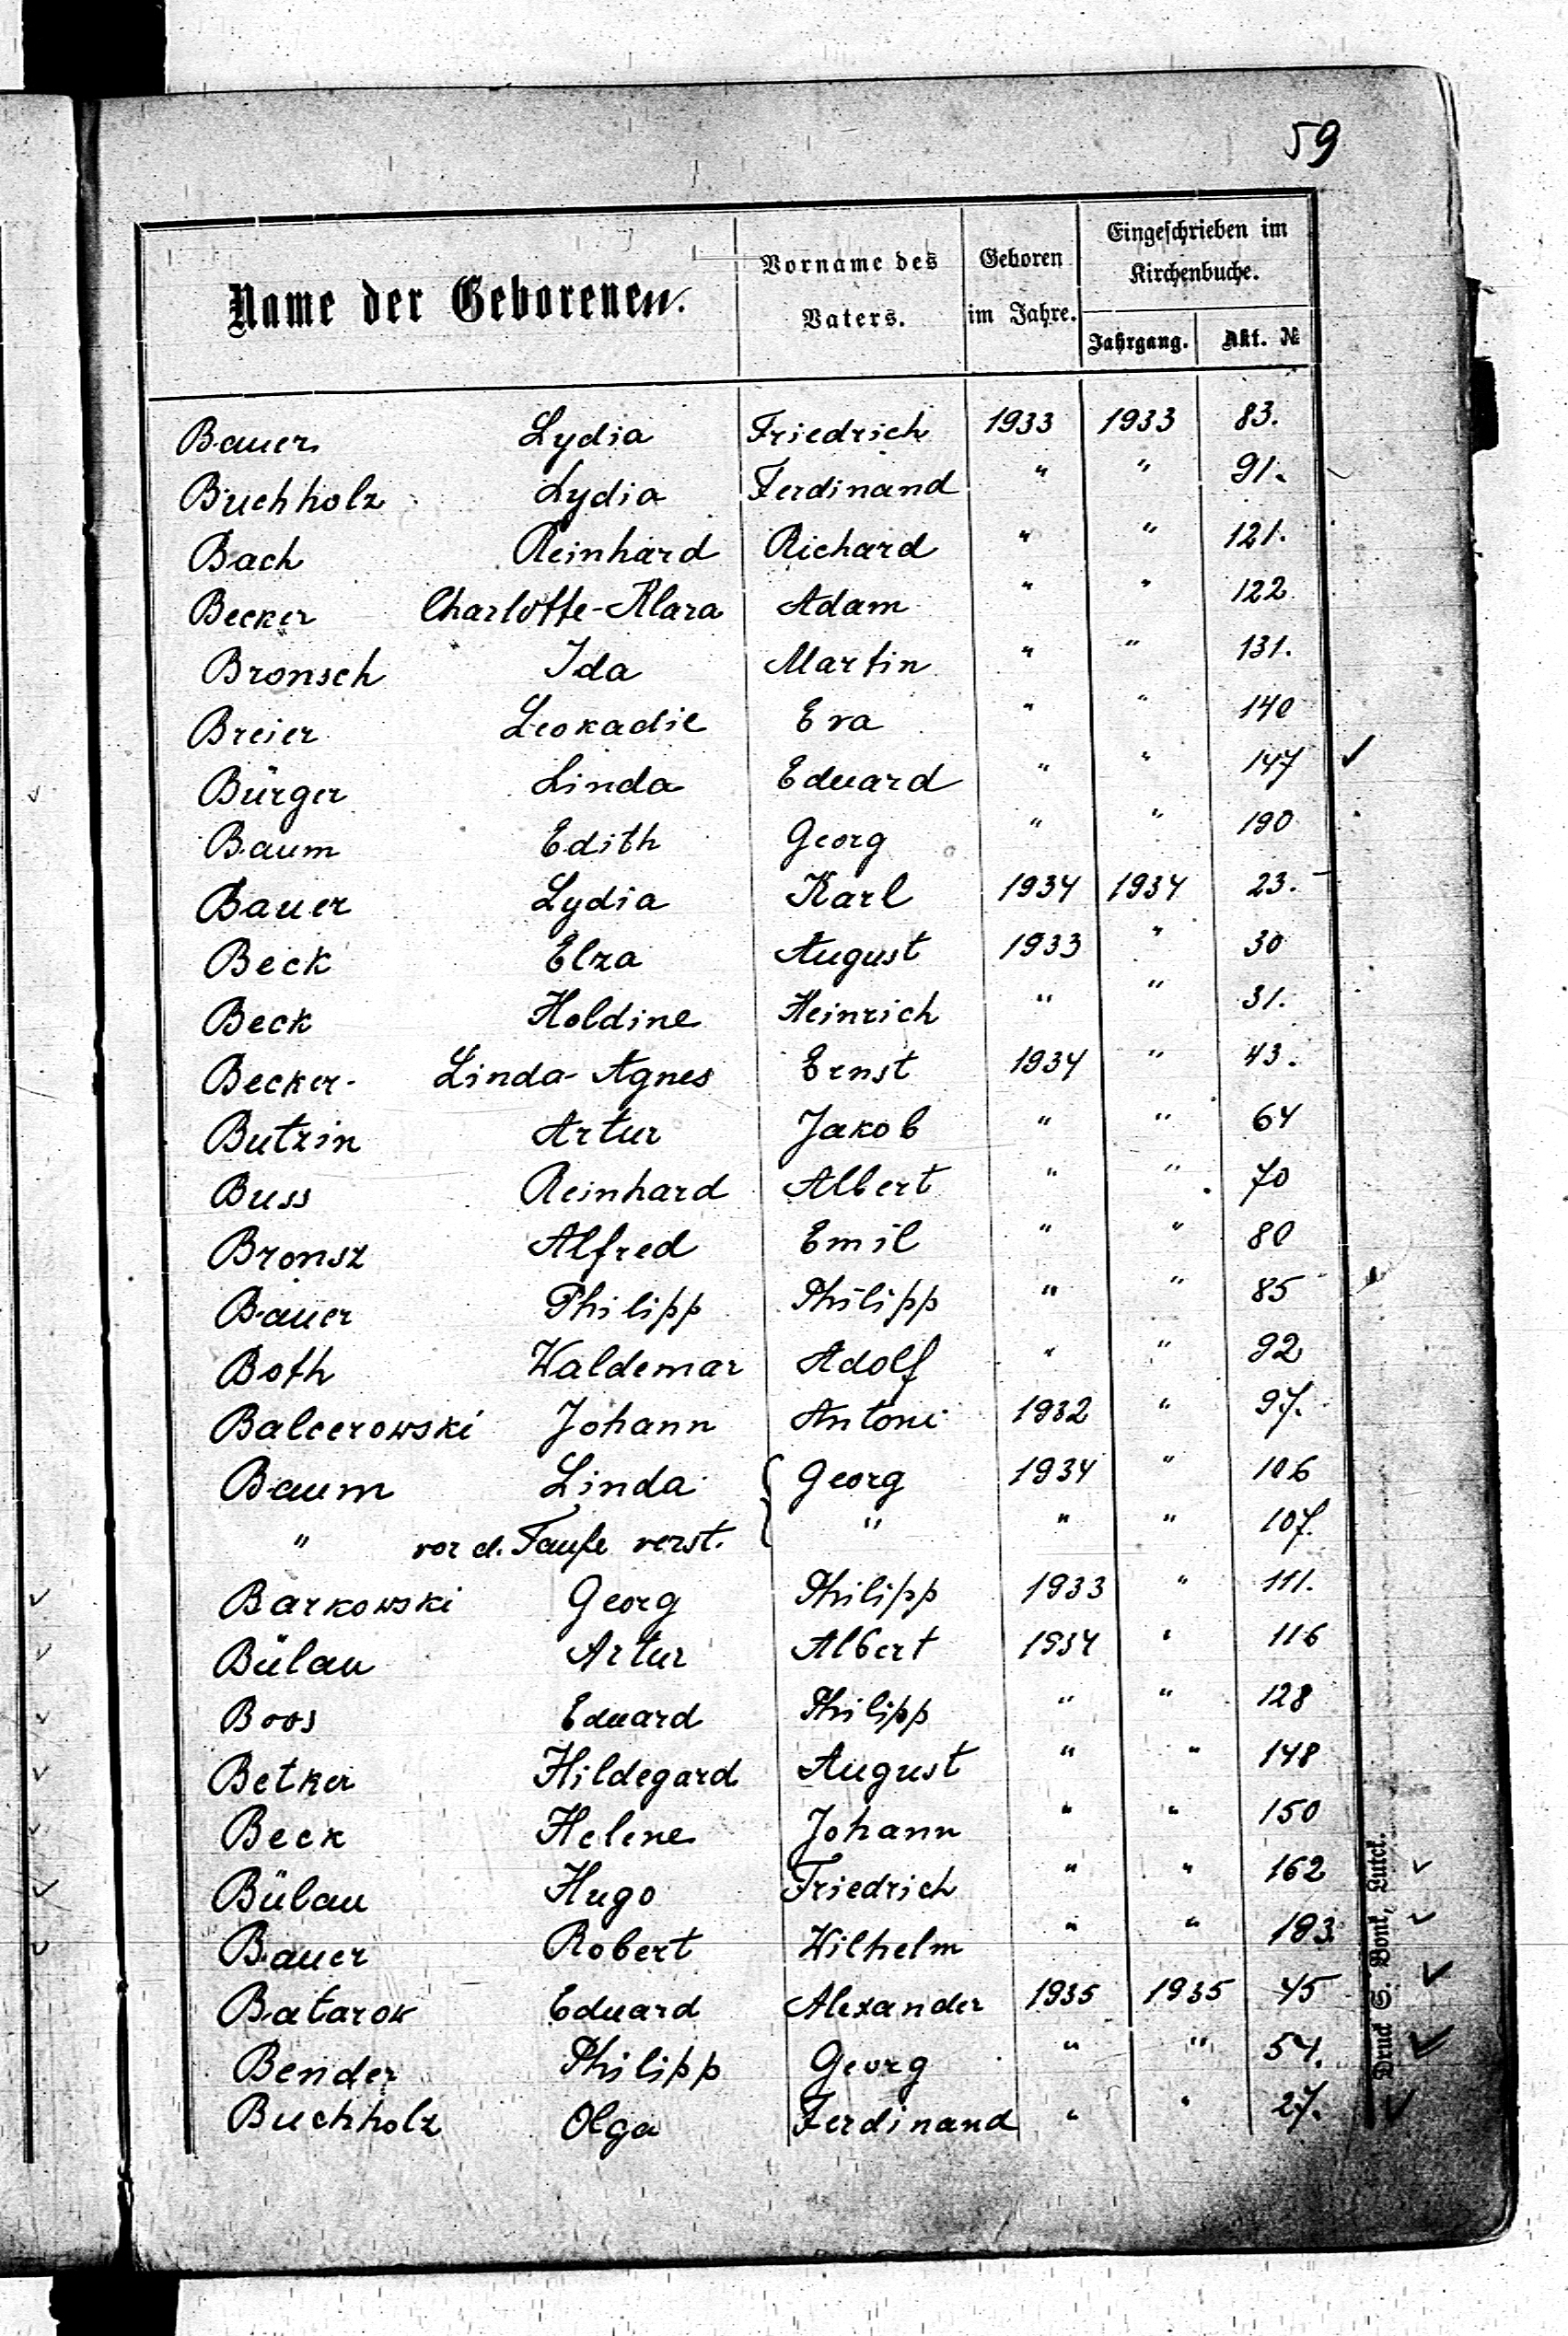 59
Name der Geborenen.
Vorname des Vaters.
Geboren im Jahre.
Eingeschrieben im Kirchenbuche.
Jahrgang.
Akt. №
Bauer Lydia Friedrich 1933 1933 83.
Buchholz Lydia Ferdinand " " 91.
Bach Reinhard Richard " " 121.
Becker Charlotte-Klara Adam " " 122
Bronsch Ida Martin " " 131.
Breier Leokadie Eva " " 140
Bürger Linda Eduard " " 147 ✓
Baum Edith Georg " " 190
Bauer Lydia Karl 1934 1934 23.
Beck Elza August 1933 " 30
Beck Holdine Heinrich " " 31.
Becker Linda-Agnes Ernst 1934 " 43.
Butzin Artur Jakob " " 64
Buss Reinhard Albert " " 70
Bronsz Alfred Emil " " 80
Bauer Philipp Philipp " " 85
Both Waldemar Adolf " " 92
Balcerowski Johann Antoni 1932 " 97.
Baum Linda { Georg 1934 " 106
" vor d. Taufe verst. " " " 107.
Barkowski Georg Philipp 1933 " 111.
Bülau Artur Albert 1934 " 116
Boos Eduard Philipp " " 128
Betker Hildegard August " " 148
Beck Helene Johann " " 150
Bülau Hugo Friedrich " " 162 ✓
Bauer Robert Wilhelm " " 183. ✓
Batarow Eduard Alexander 1935 1935 45 ✓
Bender Philipp Georg " " 54. ✓
Buchholz Olga Ferdinand " " 27. ✓
Druck S. Bonk, Lutck.